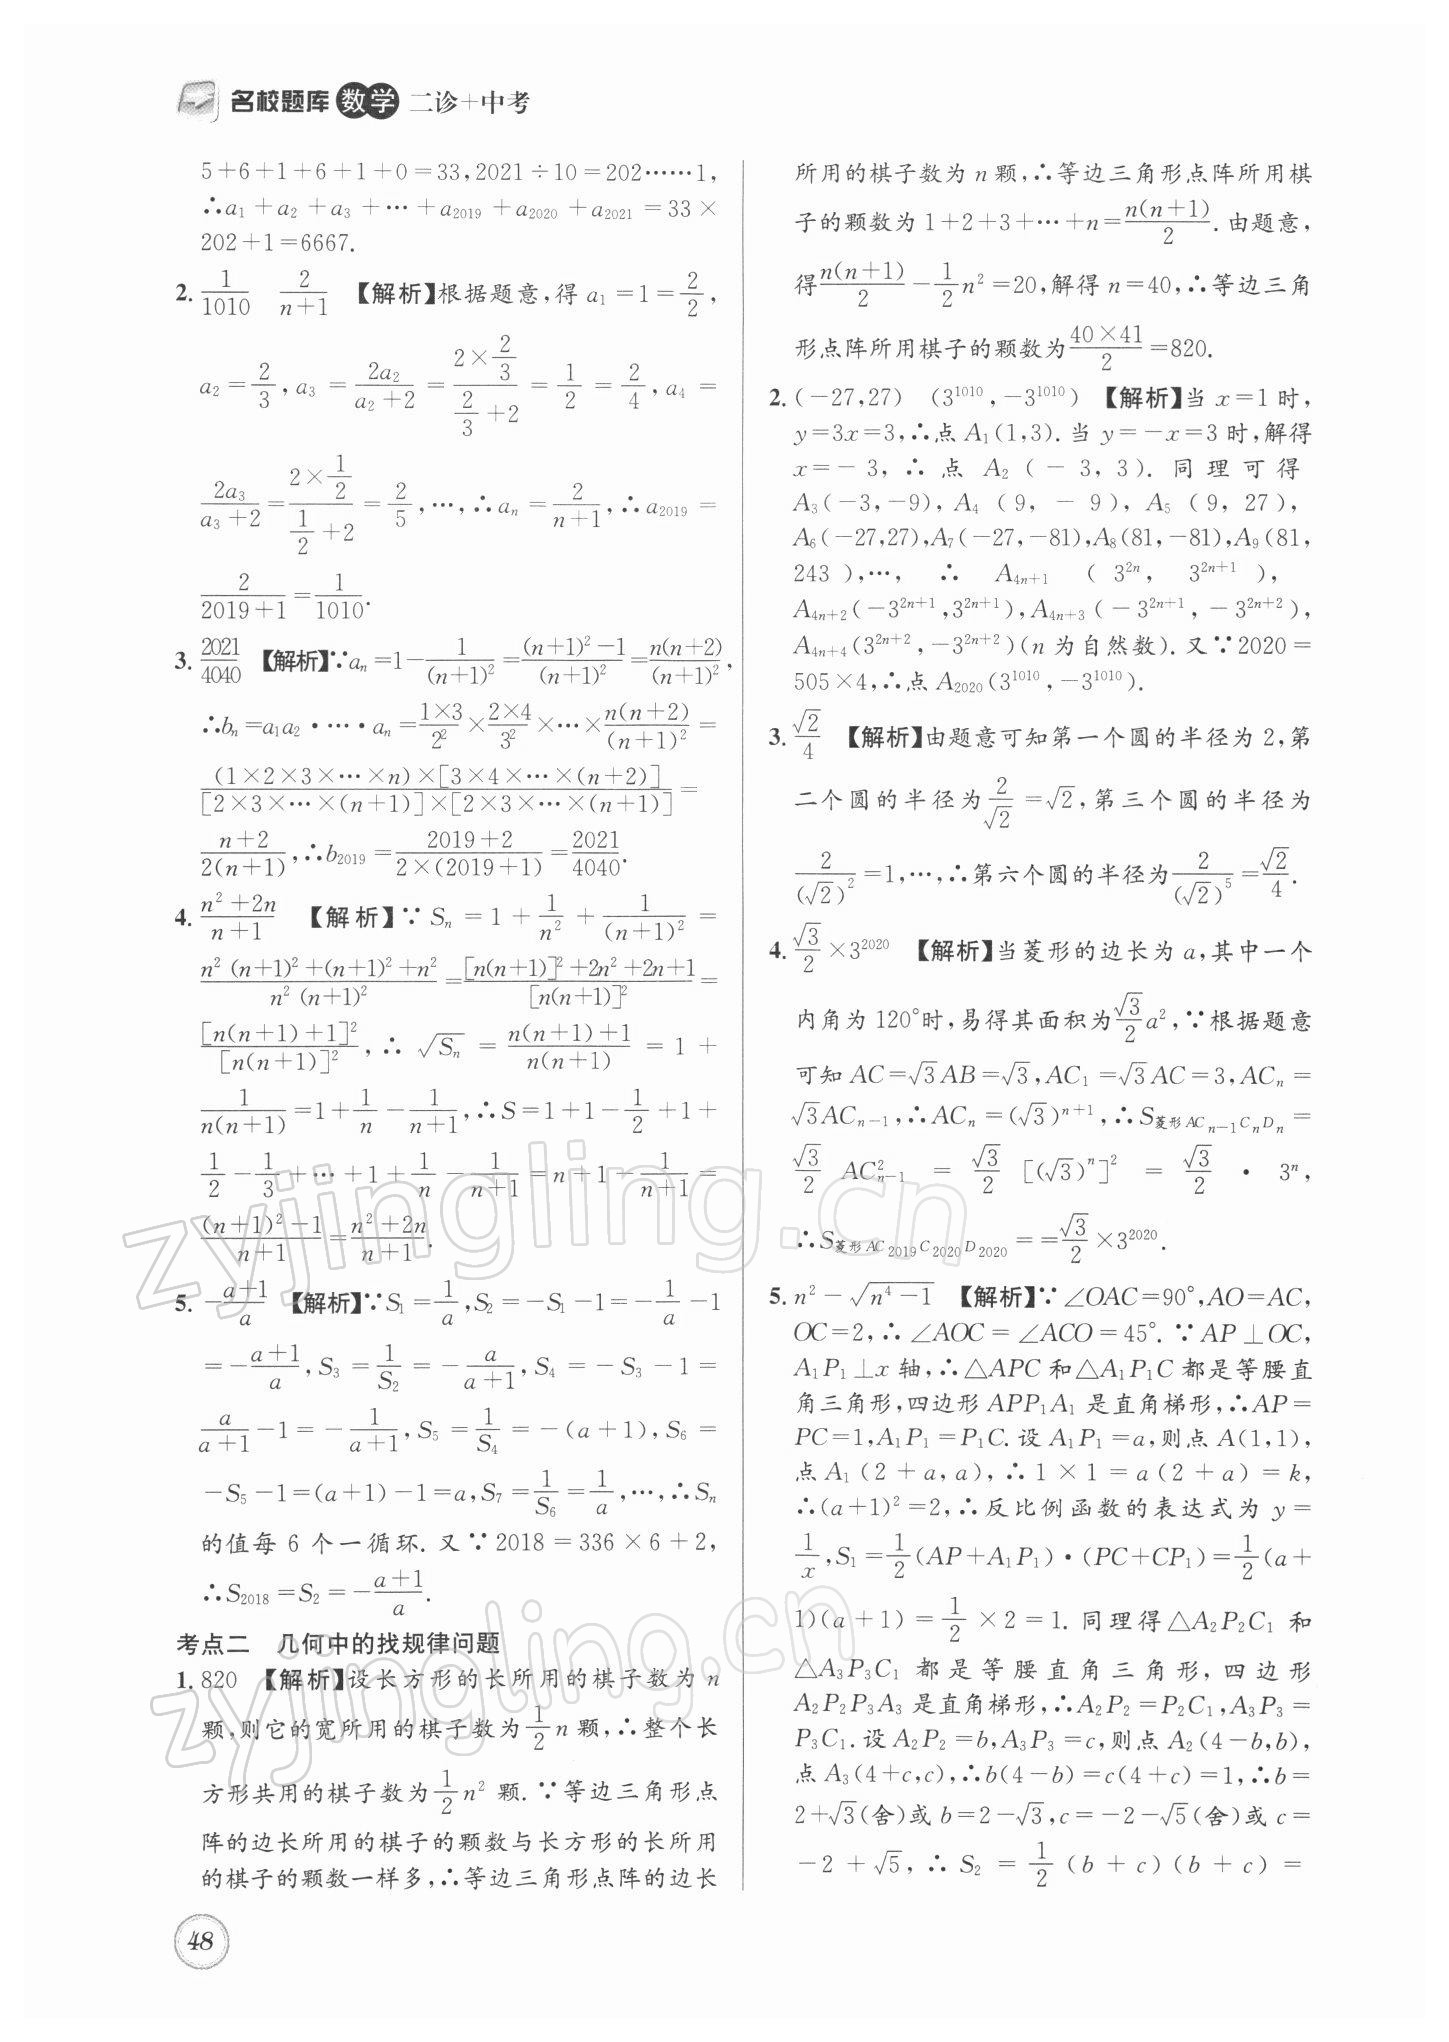 名校题库 数学 二诊+中考
5+6+1+6+1+0=33,2021÷10=202……1,
∴a₁+a₂+a₃+…+a₂₀₁₉+a₂₀₂₀+a₂₀₂₁=33×
202+1=6667.
2. 1/1010  2/(n+1) 【解析】根据题意,得 a₁=1=2/2,
a₂=2/3,a₃=2a₂/(a₂+2)=(2×2/3)/(2/3+2)=1/2=2/4,a₄=
2a₃/(a₃+2)=(2×1/2)/(1/2+2)=2/5,…,∴aₙ=2/(n+1),∴a₂₀₁₉=
2/(2019+1)=1/1010.
3. 2021/4040 【解析】∵aₙ=1-1/(n+1)²=((n+1)²-1)/(n+1)²=n(n+2)/(n+1)²,
∴bₙ=a₁a₂·…·aₙ=(1×3)/2²×(2×4)/3²×…×n(n+2)/(n+1)²=
(1×2×3×…×n)×[3×4×…×(n+2)]/[2×3×…×(n+1)]×[2×3×…×(n+1)]=
(n+2)/2(n+1),∴b₂₀₁₉=(2019+2)/(2×(2019+1))=2021/4040.
4. (n²+2n)/(n+1) 【解析】∵Sₙ=1+1/n²+1/(n+1)²=
(n²(n+1)²+(n+1)²+n²)/(n²(n+1)²)=([n(n+1)]²+2n²+2n+1)/[n(n+1)]²=
[n(n+1)+1]²/[n(n+1)]²,∴√Sₙ=(n(n+1)+1)/(n(n+1))=1+
1/(n(n+1))=1+1/n-1/(n+1),∴S=1+1-1/2+1+
1/2-1/3+…+1+1/n-1/(n+1)=n+1-1/(n+1)=
((n+1)²-1)/(n+1)=(n²+2n)/(n+1).
5. -(a+1)/a 【解析】∵S₁=1/a,S₂=-S₁-1=-1/a-1
=-(a+1)/a,S₃=1/S₂=-a/(a+1),S₄=-S₃-1=
a/(a+1)-1=-1/(a+1),S₅=1/S₄=-(a+1),S₆=
-S₅-1=(a+1)-1=a,S₇=1/S₆=1/a,…,∴Sₙ
的值每 6 个一循环.又∵2018=336×6+2,
∴S₂₀₁₈=S₂=-(a+1)/a.
考点二 几何中的找规律问题
1. 820 【解析】设长方形的长所用的棋子数为 n
颗,则它的宽所用的棋子数为1/2n 颗,∴整个长
方形共用的棋子数为1/2n² 颗.∵等边三角形点
阵的边长所用的棋子的颗数与长方形的长所用
的棋子的颗数一样多,∴等边三角形点阵的边长
所用的棋子数为 n 颗,∴等边三角形点阵所用棋
子的颗数为 1+2+3+…+n=n(n+1)/2.由题意,
得n(n+1)/2-1/2n²=20,解得 n=40,∴等边三角
形点阵所用棋子的颗数为(40×41)/2=820.
2. (-27,27) (3¹⁰¹⁰,-3¹⁰¹⁰) 【解析】当 x=1 时,
y=3x=3,∴点 A₁(1,3).当 y=-x=3 时,解得
x=-3,∴点 A₂(-3,3).同理可得
A₃(-3,-9),A₄(9,-9),A₅(9,27),
A₆(-27,27),A₇(-27,-81),A₈(81,-81),A₉(81,
243),…,∴A₄ₙ₊₁(3²ⁿ,3²ⁿ⁺¹),
A₄ₙ₊₂(-3²ⁿ⁺¹,3²ⁿ⁺¹),A₄ₙ₊₃(-3²ⁿ⁺¹,-3²ⁿ⁺²),
A₄ₙ₊₄(3²ⁿ⁺²,-3²ⁿ⁺²)(n 为自然数).又∵2020=
505×4,∴点 A₂₀₂₀(3¹⁰¹⁰,-3¹⁰¹⁰).
3. √2/4 【解析】由题意可知第一个圆的半径为 2,第
二个圆的半径为2/√2=√2,第三个圆的半径为
2/(√2)²=1,…,∴第六个圆的半径为2/(√2)⁵=√2/4.
4. √3/2×3²⁰²⁰ 【解析】当菱形的边长为 a,其中一个
内角为 120°时,易得其面积为√3/2a²,∵根据题意
可知 AC=√3AB=√3,AC₁=√3AC=3,ACₙ=
√3ACₙ₋₁,∴ACₙ=(√3)ⁿ⁺¹,∴S菱形ACₙ₋₁CₙDₙ=
√3/2 AC²ₙ₋₁=√3/2[(√3)ⁿ]²=√3/2·3ⁿ,
∴S菱形AC₂₀₁₉C₂₀₂₀D₂₀₂₀==√3/2×3²⁰²⁰.
5. n²-√(n⁴-1) 【解析】∵∠OAC=90°,AO=AC,
OC=2,∴∠AOC=∠ACO=45°.∵AP⊥OC,
A₁P₁⊥x 轴,∴△APC 和△A₁P₁C 都是等腰直
角三角形,四边形 APP₁A₁ 是直角梯形,∴AP=
PC=1,A₁P₁=P₁C.设 A₁P₁=a,则点 A(1,1),
点 A₁(2+a,a),∴1×1=a(2+a)=k,
∴(a+1)²=2,∴反比例函数的表达式为 y=
1/x,S₁=1/2(AP+A₁P₁)·(PC+CP₁)=1/2(a+
1)(a+1)=1/2×2=1.同理得△A₂P₂C₁ 和
△A₃P₃C₁ 都是等腰直角三角形,四边形
A₂P₂P₃A₃ 是直角梯形,∴A₂P₂=P₂C₁,A₃P₃=
P₃C₁.设 A₂P₂=b,A₃P₃=c,则点 A₂(4-b,b),
点 A₃(4+c,c),∴b(4-b)=c(4+c)=1,∴b=
2+√3(舍)或 b=2-√3,c=-2-√5(舍)或 c=
-2+√5,∴S₂=1/2(b+c)(b+c)=
48
zyjingling.cn
zyjingling.cn